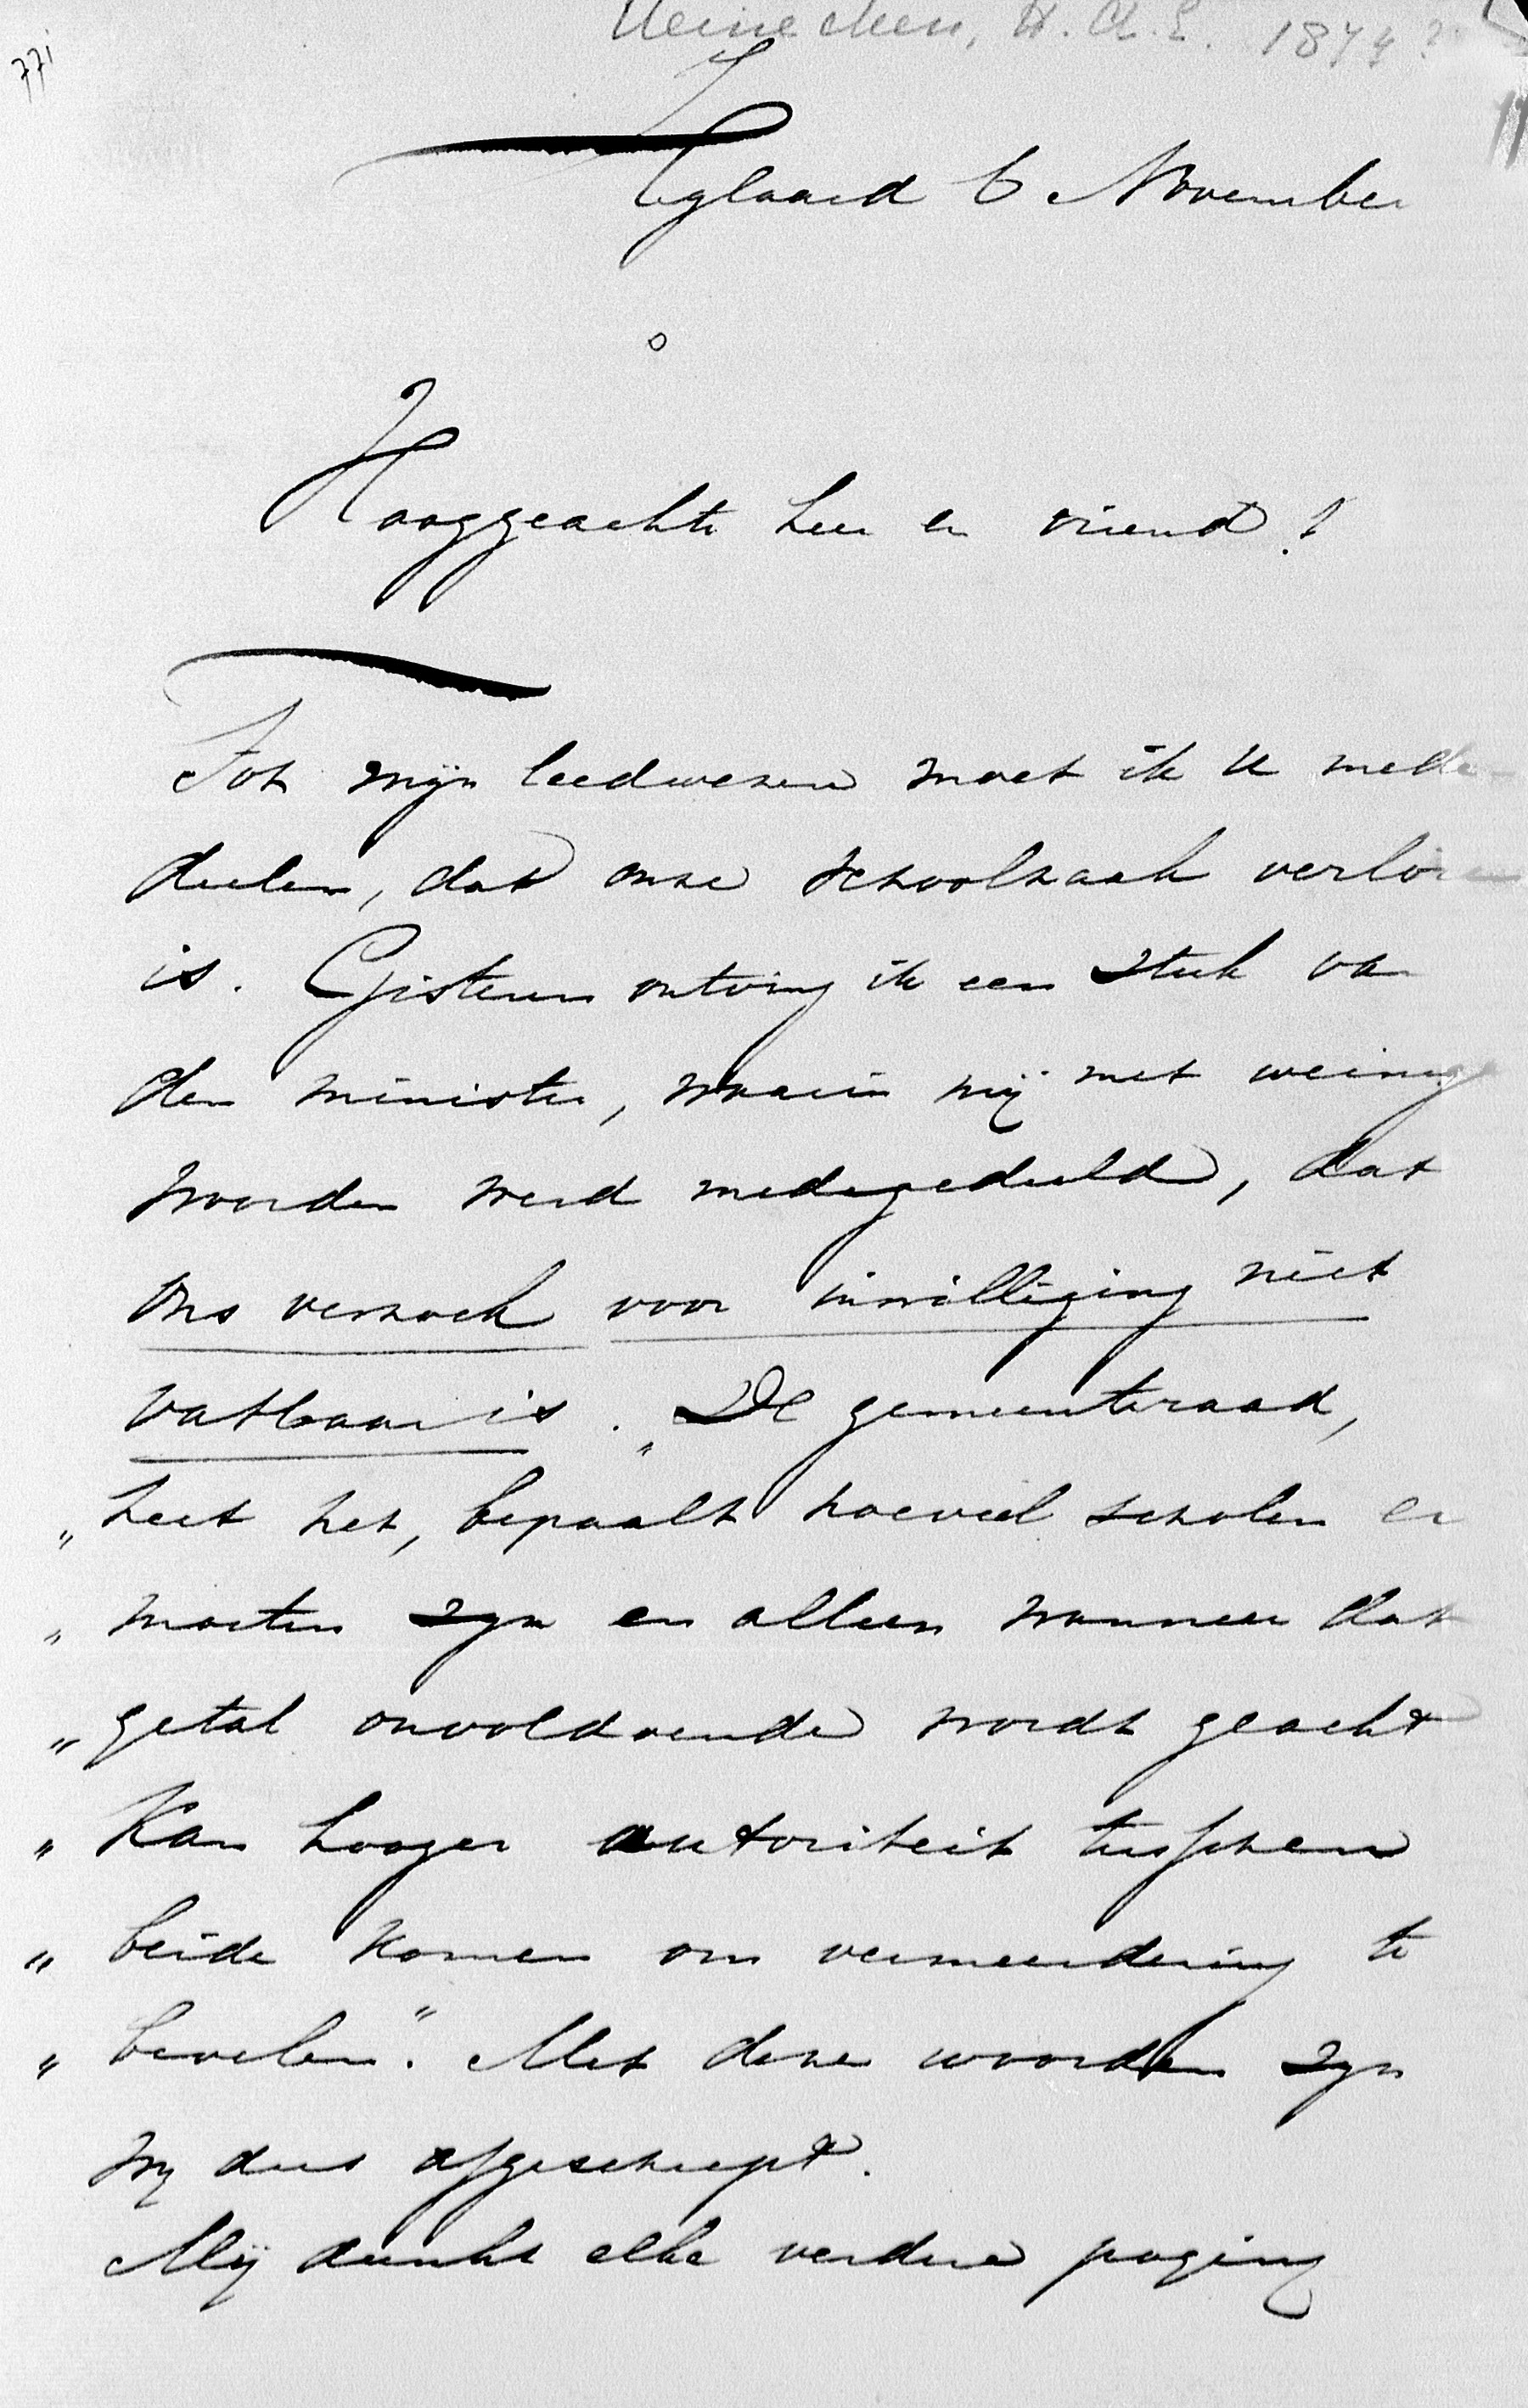 771
Heinecken, H. A. E. 1874?
Tzglaard 6 November
Hooggeachte heer en vriend!
Tot mijn leedwezen moet ik U mede-
deelen, dat onze schoolzaak verloren
is. Gisteren ontving ik een stuk van
den minister, waarin mij met weinige
woorden werd medegedeeld, dat
ons verzoek voor inwilliging niet
vatbaar is. „De gemeenteraad,
„heet het, bepaalt hoeveel scholen er
„moeten zijn en alleen wanneer dat
„getal onvoldoende wordt geacht
„kan hooger autoriteit tusschen
„beide komen om vermeerdering te
„bevelen." Met deze woorden zijn
wij dus afgescheept.
Mij dunkt elke verdere poging